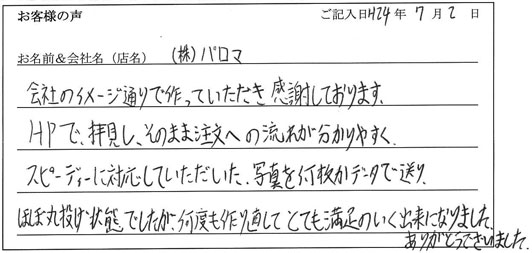 お客様の声 ご記入日H24年 7月 2日
お名前&会社名(店名) (株)パロマ
会社のイメージ通りで作っていただき感謝しております。
HPで、拝見し、そのまま注文への流れが分かりやすく、
スピーディーに対応していただいた。写真を何枚かデータで送り、
ほぼ丸投げ状態でしたが、何度も作り直してとても満足のいく出来になりました。
ありがとうございました。